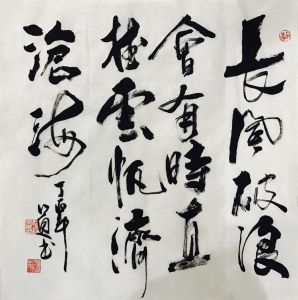 長風破浪
會有時直
挂雲帆濟
滄海
丁酉年